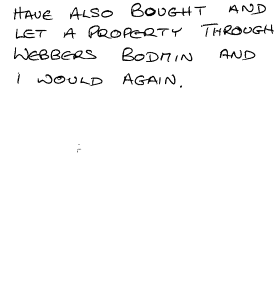 HAVE ALSO BOUGHT AND
LET A PROPERTY THROUGH
WEBBERS BODMIN AND
I WOULD AGAIN.